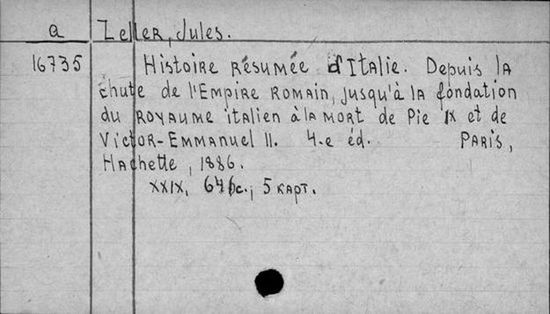 a Zeller, Jules.
16735 Histoire résumée d'Italie. Depuis la
chute de l'Empire Romain, jusqu'à la fondation
du royaume italien à la mort de Pie IX et de
Victor-Emmanuel II. 4-e éd. Paris,
Hachette, 1886.
XXIX, с.; 5 карт.